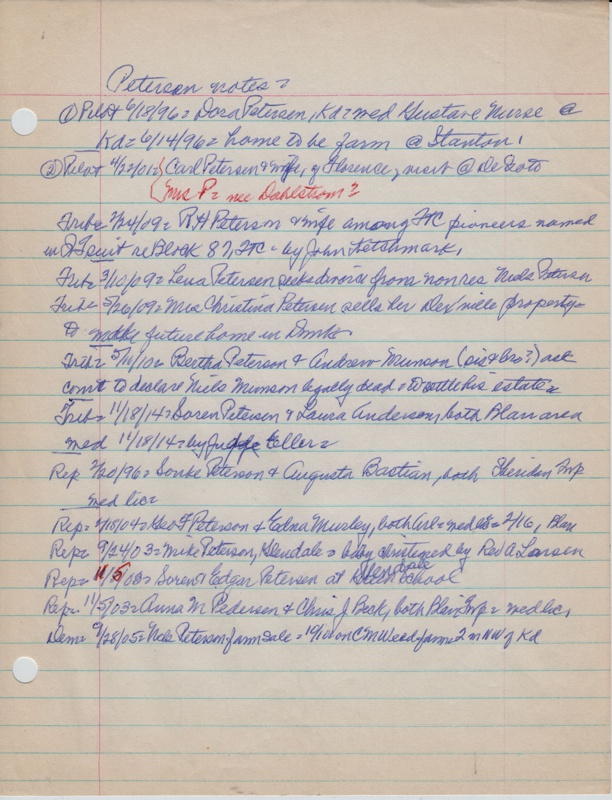 Petersen notes =
① Pilot 6/13/96 = Dora Petersen, Kd = med Gustave Nurse @
Kd = 6/14/96 = home to be farm @ Stanton.
② Pilot 4/22/01 = Carl Petersen & wife, of Florence, visit @ DeSoto
Mrs P = nee Dahlstrom?
Trib = 2/24/09 = R.H Peterson & wife among FtC pioneers named
in suit re Block 87, FtC = by John
Trib = 3/10/09 = Lena Petersen seeks divorce from nonres Niels Petersen
Trib = 5/26/09 = Mrs Christina Petersen sells her property =
to make future home in Dmk
Trib = 5/11/10 = Bertha Peterson & Andrew Munson (sis & bro?) ask
court to declare Niels Munson legally dead = to settle his estate =
Trib = 11/18/14 = Soren Petersen & Laura Anderson, both Blair area
med 11/18/14 = by Judge Eller =
Rep 2/20/96 = Peterson & Augusta Bastian, both Sheridan Twp
med lic =
Rep = 2/18/04 = Geo F Peterson & Edna Mursley, both Arl = med = 2/16, Blair
Rep = 9/24/03 = Mike Peterson, Glendale = baby christened by Rev A Larsen
Rep = 11/5/03 = Soren & Edgar Petersen at Glendale School
Rep = 11/5/03 = Anna M Pedersen & Chris J Beck, both Blair Twp = med lic,
Dem = 9/28/05 = Nels Peterson farm sale = on C M Weed farm = 2 m NW of Kd